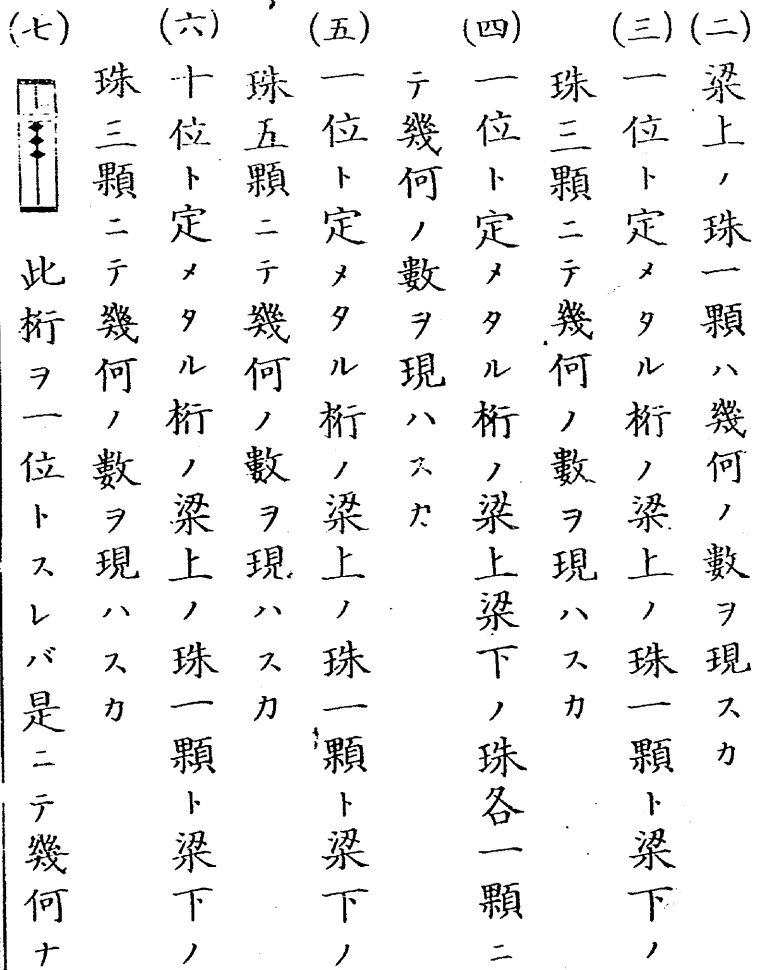 (二)梁上ノ珠一顆ハ幾何ノ數ヲ現スカ
(三)一位ト定メタル桁ノ梁上ノ珠一顆ト梁下ノ
珠三顆ニテ幾何ノ數ヲ現ハスカ
(四)一位ト定メタル桁ノ梁上梁下ノ珠各一顆ニ
テ幾何ノ數ヲ現ハスカ
(五)一位ト定メタル桁ノ梁上ノ珠一顆ト梁下ノ
珠五顆ニテ幾何ノ數ヲ現ハスカ
(六)十位ト定メタル桁ノ梁上ノ珠一顆ト梁下ノ
珠三顆ニテ幾何ノ數ヲ現ハスカ
(七)此桁ヲ一位トスレバ是ニテ幾何ナ